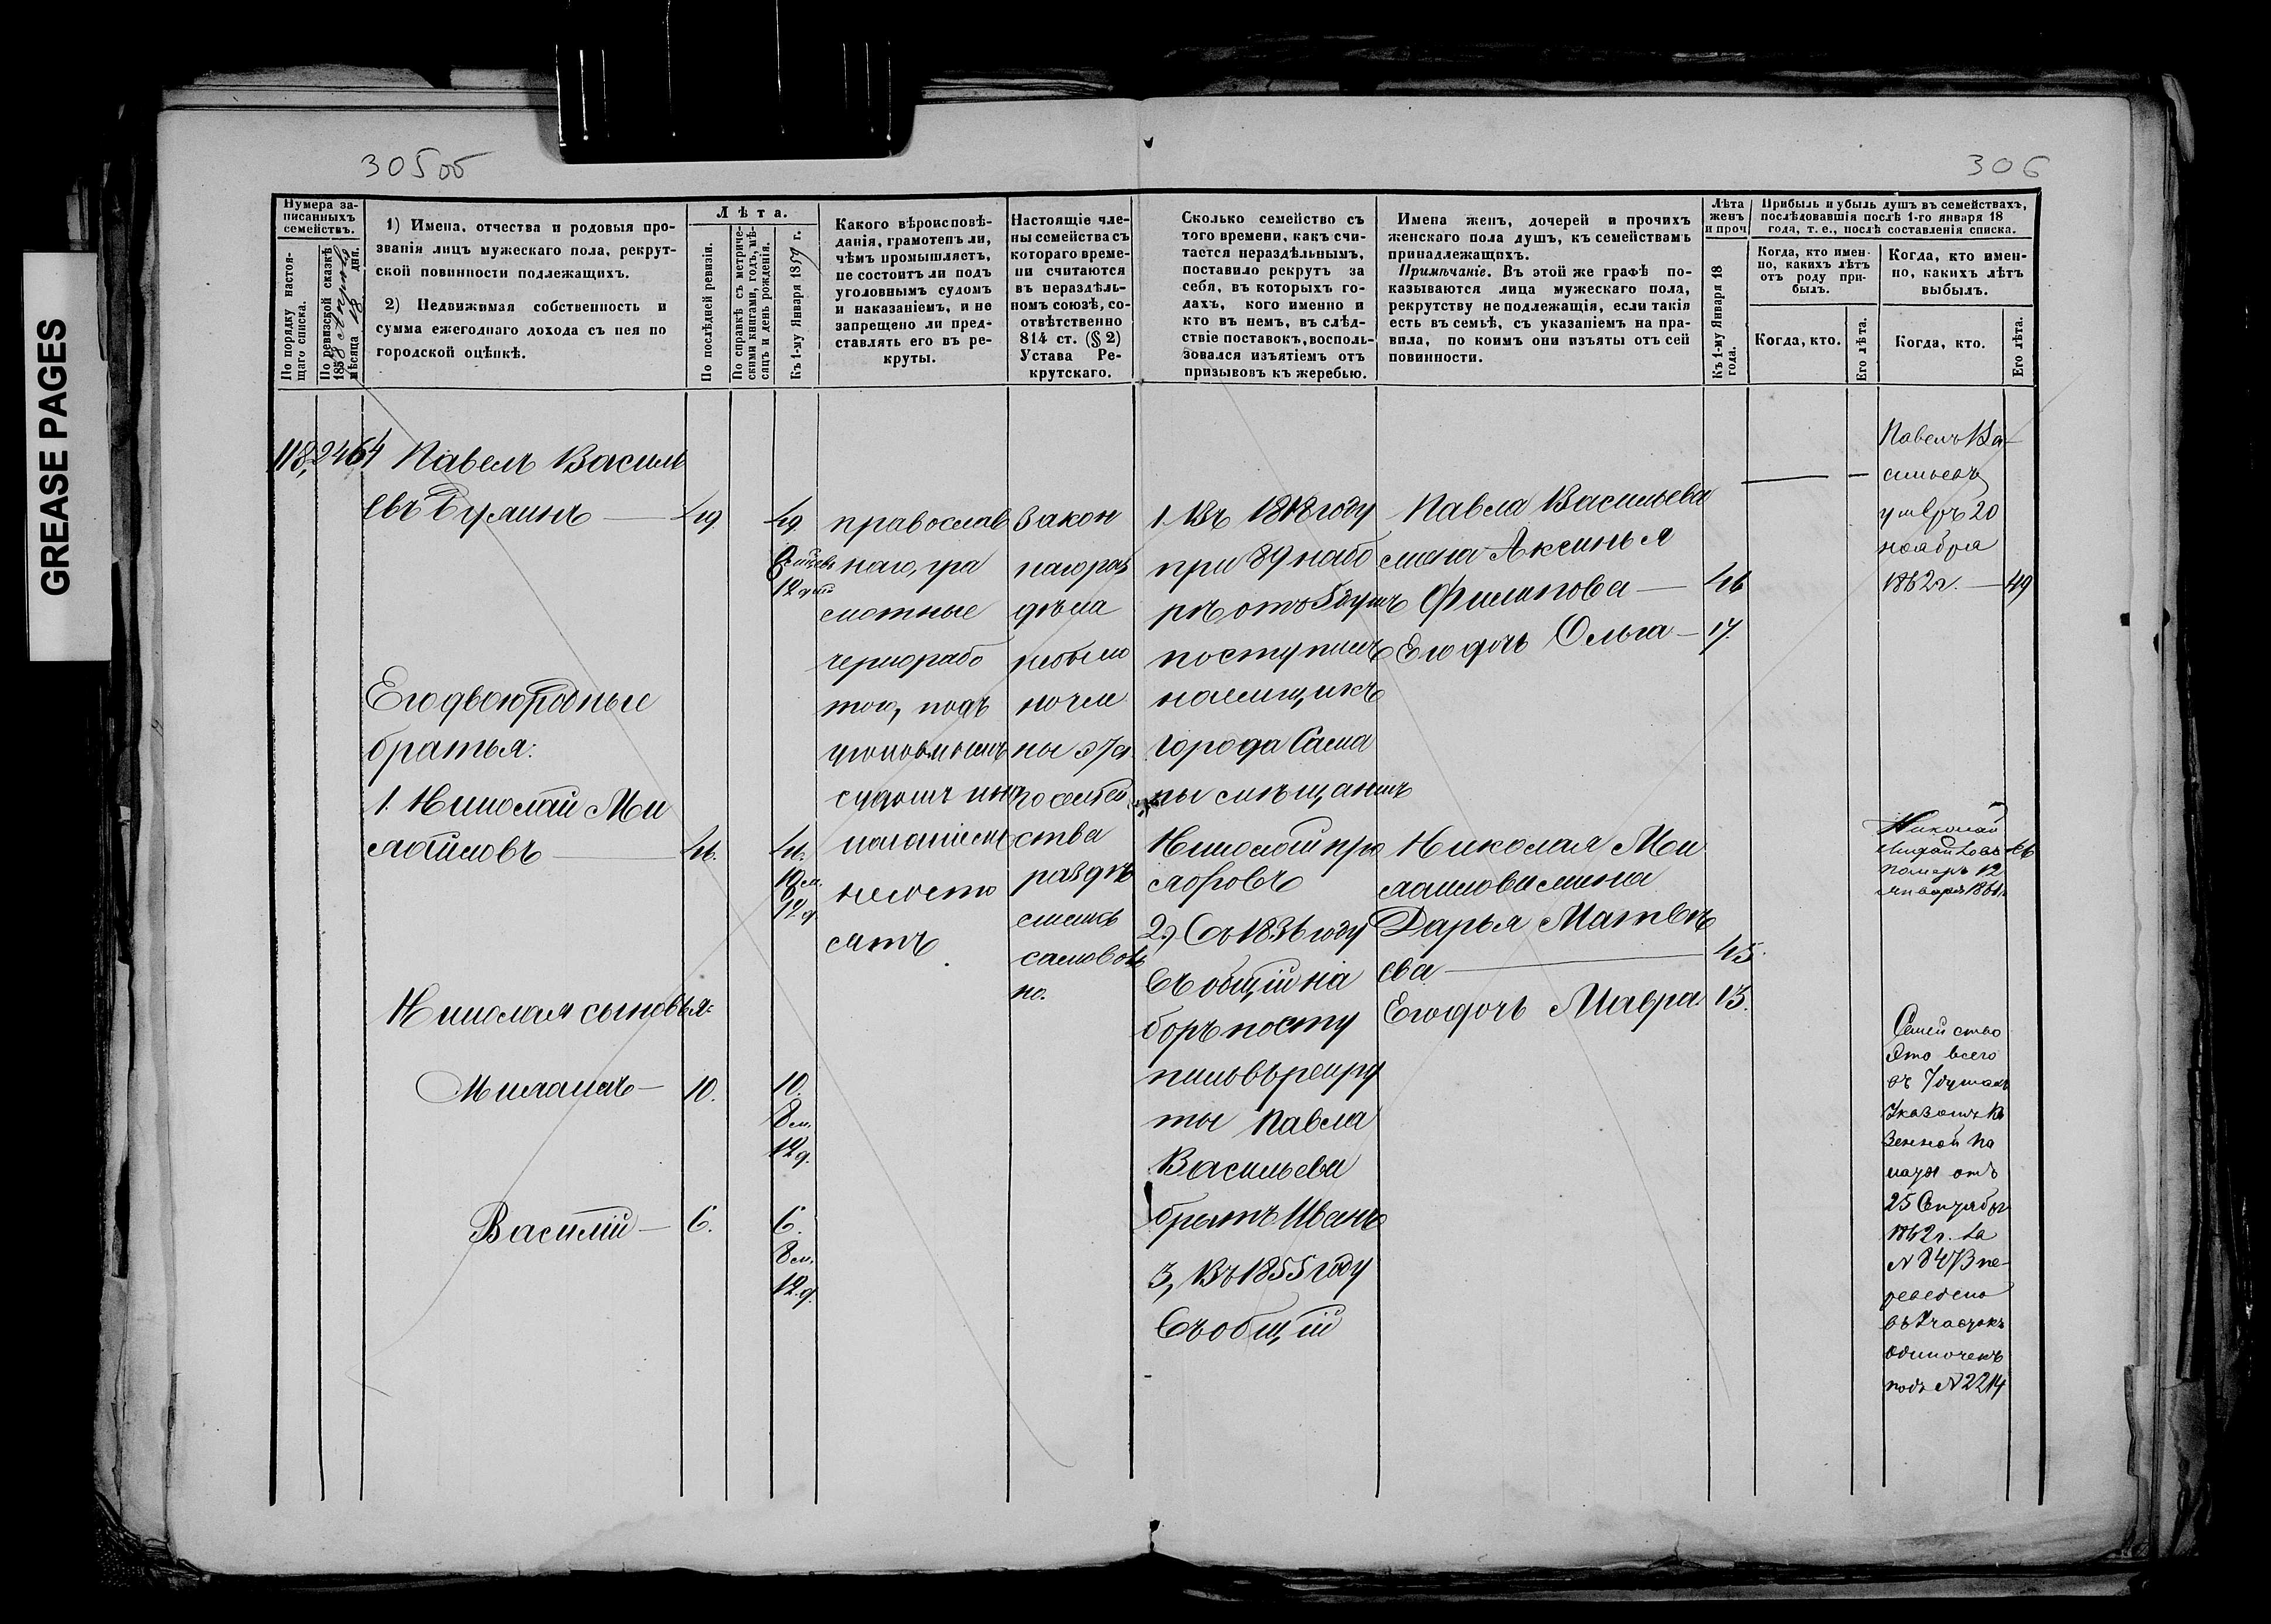 GREASE PAGES
305об
306
Нумера за-
писанныхъ
семействъ.
По порядку настоя-
щаго списка.
По ревизской сказкѣ
1858 Апрѣля
мѣсяца 18 дня.
1) Имена, отчества и родовыя про-
званія лицъ мужескаго пола, рекрут-
ской повинности подлежащихъ.
2) Недвижимая собственность и
сумма ежегоднаго дохода съ нея по
городской оцѣнкѣ.
Лѣта.
По послѣдней ревизіи.
По справкѣ съ метриче-
скими книгами, годъ, мѣ-
сяцъ и день рожденія.
Къ 1-му Января 1859 г.
Какого вѣроисповѣ-
данія, грамотенъ ли,
чѣмъ промышляетъ,
не состоитъ ли подъ
уголовнымъ судомъ
и наказаніемъ, и не
запрещено ли пред-
ставлять его въ ре-
круты.
Настоящіе чле-
ны семейства съ
котораго време-
ни считаются
въ нераздѣль-
номъ союзѣ, со-
отвѣтственно
814 ст. (§ 2)
Устава Ре-
крутскаго.
Сколько семейство съ
того времени, какъ счи-
тается нераздѣльнымъ,
поставило рекрутъ за
себя, въ которыхъ го-
дахъ, кого именно и
кто въ немъ, въ слѣд-
ствіе поставокъ, восполь-
зовался изъятіемъ отъ
призывовъ къ жеребью.
Имена женъ, дочерей и прочихъ
женскаго пола душъ, къ семействамъ
принадлежащихъ.
Примѣчаніе. Въ этой же графѣ по-
казываются лица мужескаго пола,
рекрутству не подлежащія, если такія
есть въ семьѣ, съ указаніемъ на пра-
вила, по коимъ они изъяты отъ сей
повинности.
Лѣта
женъ
и проч
Къ 1-му Января 18
года.
Прибыль и убыль душъ въ семействахъ,
послѣдовавшія послѣ 1-го января 18
года, т. е., послѣ составленія списка.
Когда, кто имен-
но, какихъ лѣтъ
отъ роду при-
былъ.
Когда, кто имен-
но, какихъ лѣтъ
выбылъ.
Когда, кто.
Его лѣта.
Когда, кто.
Его лѣта.
118, 2464 Павелъ Василь
евъ — 49
Его двоюродные
братья:
1. Николай Ми
хайловъ — 46.
Николая сыновья:
Михаилъ — 10.
Василій — 6.
49
8 мѣсяц
12 дней
46.
10 м.
12 д.
10.
8 м.
12 д.
6.
8 м.
12 д.
православ
наго, гра
мотные
чернорабо
тою, подъ
уголовнымъ
судомъ и на
казаніемъ
несосто
ятъ
Закон
наго раз
дѣла
небыло
но чле
ны эта
го семей
ства
раздѣ
лились
самоволь
но.
1. Въ 1818 году
при 89 набо
рѣ отъ 5 душъ
поступилъ
наемщикъ
города Сама
ры мѣщанинъ
Николай про
хоровъ
2, Съ 1836 году
Въ общій на
боръ посту
пилъ въ рекру
ты Павла
Васильева
братъ Иванъ
3, Въ 1855 году
Въ общій
Павла Васильева
жена Аксинья
Филипова — 46
Его дочь Ольга — 17.
Николая Ми
хайлова жена
Дарья Матвѣ
ева — 45.
Его дочь Мавра 13.
Павелъ Ва-
сильевъ
умеръ 20
ноября
1862 г. — 49
Николай
Михайловъ 46
померъ 12
Января 1861
Семейство
это всего
въ 7 душахъ
Указомъ Ка
зенной Па
латы отъ
25 Октября
1862 г. за
№ 8473 пе-
реведено
въ участокъ
одиночекъ
подъ № 2214